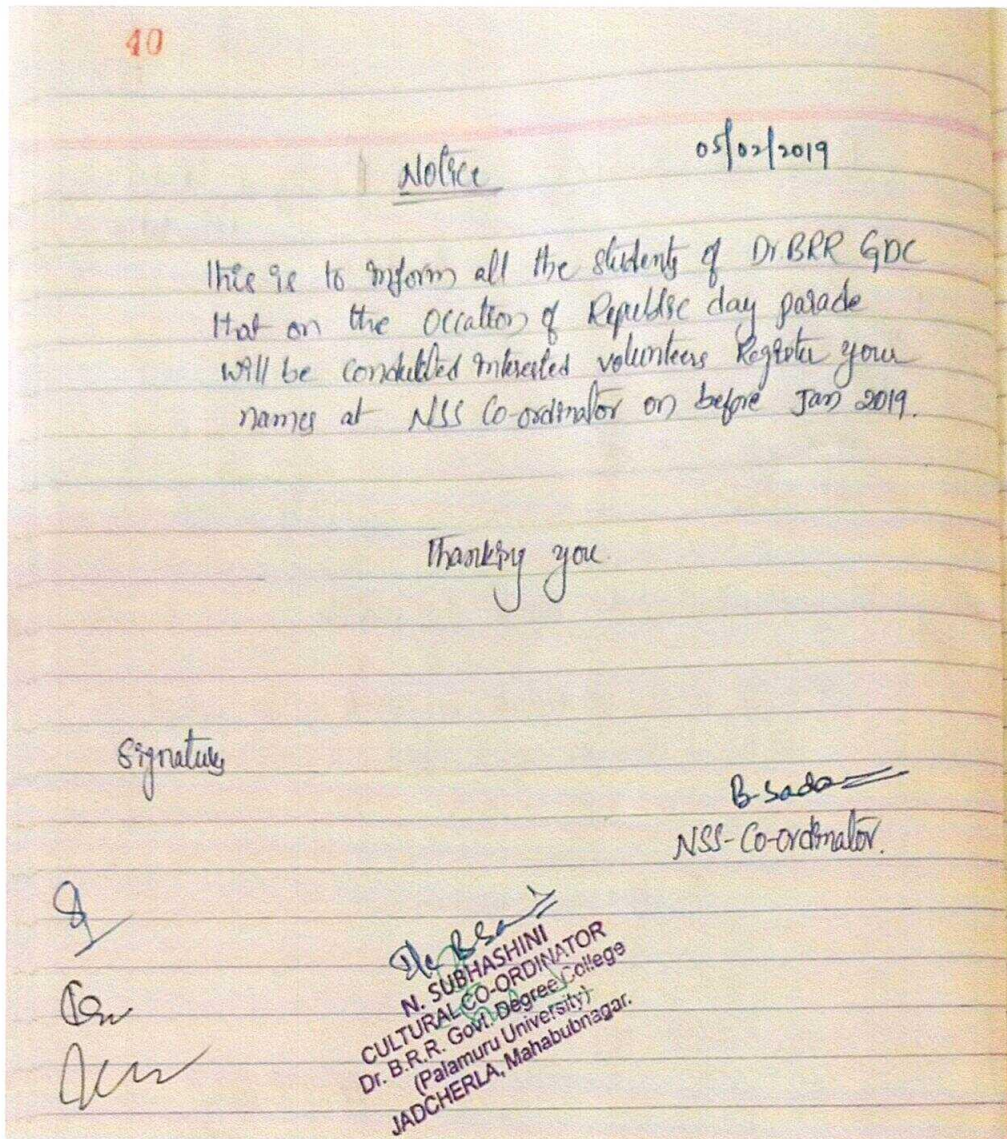 40
Notice 05/02/2019
This is to inform all the students of Dr.BRR GDC
that on the Occation of Republic day parade
will be conducted interested volunteers Register your
names at NSS Co-ordinator on before Jan 2019.
Thanking you.
Signatures
B. Sada
NSS-Co-ordinator.
N. SUBHASHINI
CULTURAL CO-ORDINATOR
Dr. B.R.R. Govt. Degree College
(Palamuru University)
JADCHERLA, Mahabubnagar.